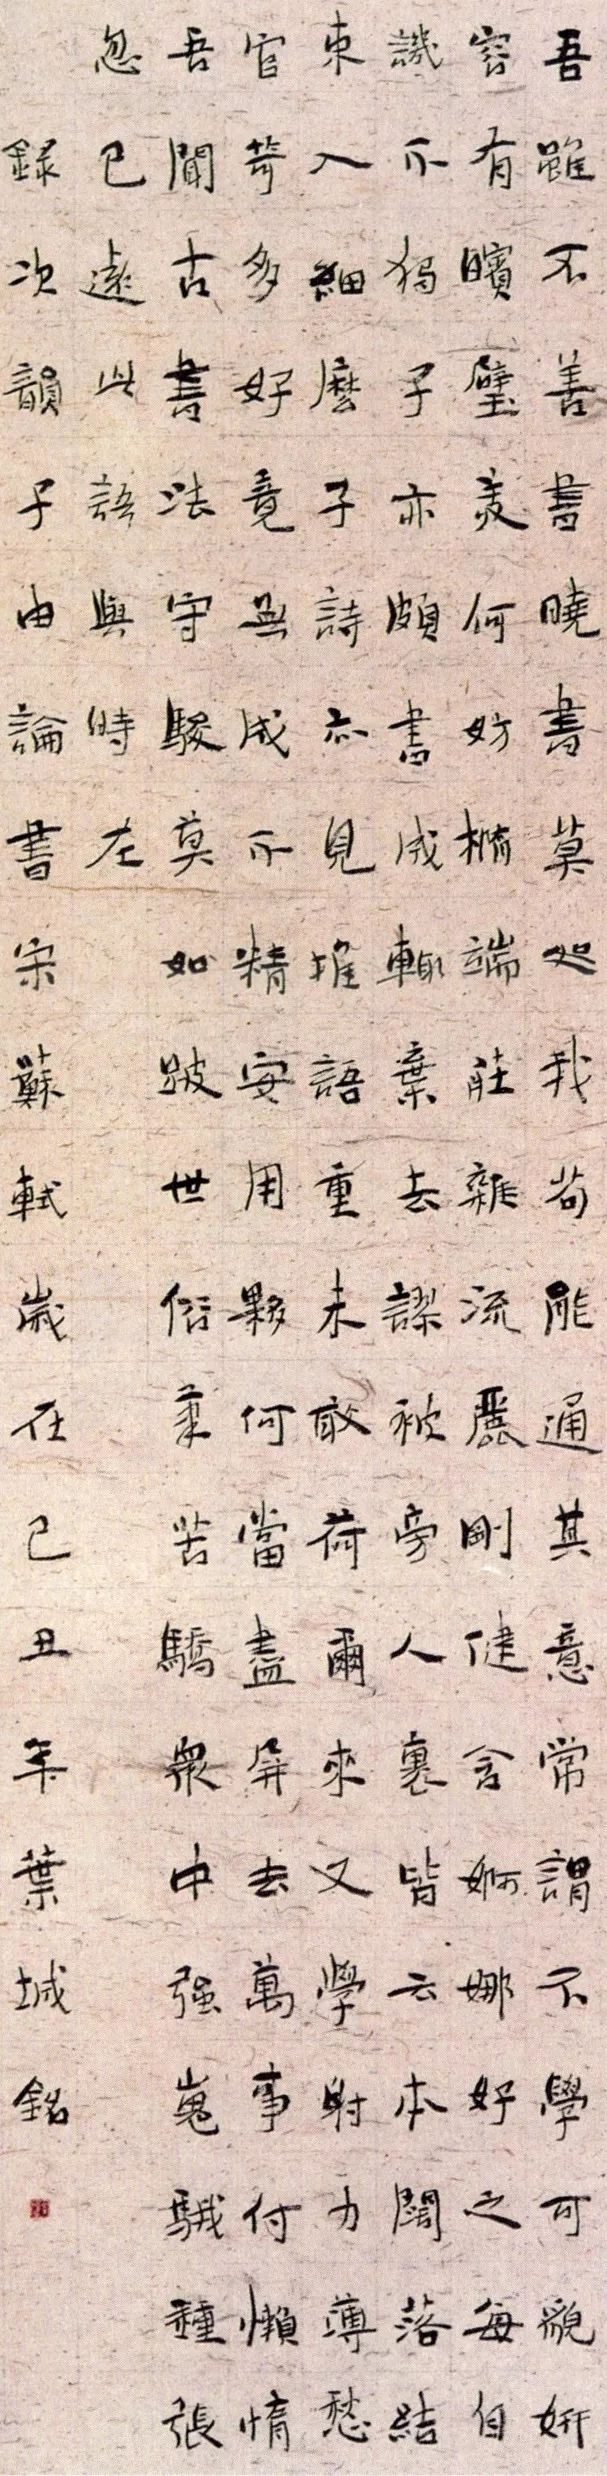 吾雖不善書曉書莫如我苟能通其意常謂不學可貌妍
容有矉璧美何妨橢端莊雜流麗剛健含婀娜好之每自
譏不獨子亦頗書成輒棄去謬被旁人裹皆云本闊落結
束入細麼子詩亦見推語重未敢荷爾來又學射力薄愁
官笴多好竟無成不精安用夥何當盡屏去萬事付懶惰
吾聞古書法守駿莫如跛世俗筆苦驕衆中强嵬騀種張
忽已遠此語與時左
録次韻子由論書宋蘇軾歲在己丑年葉城銘